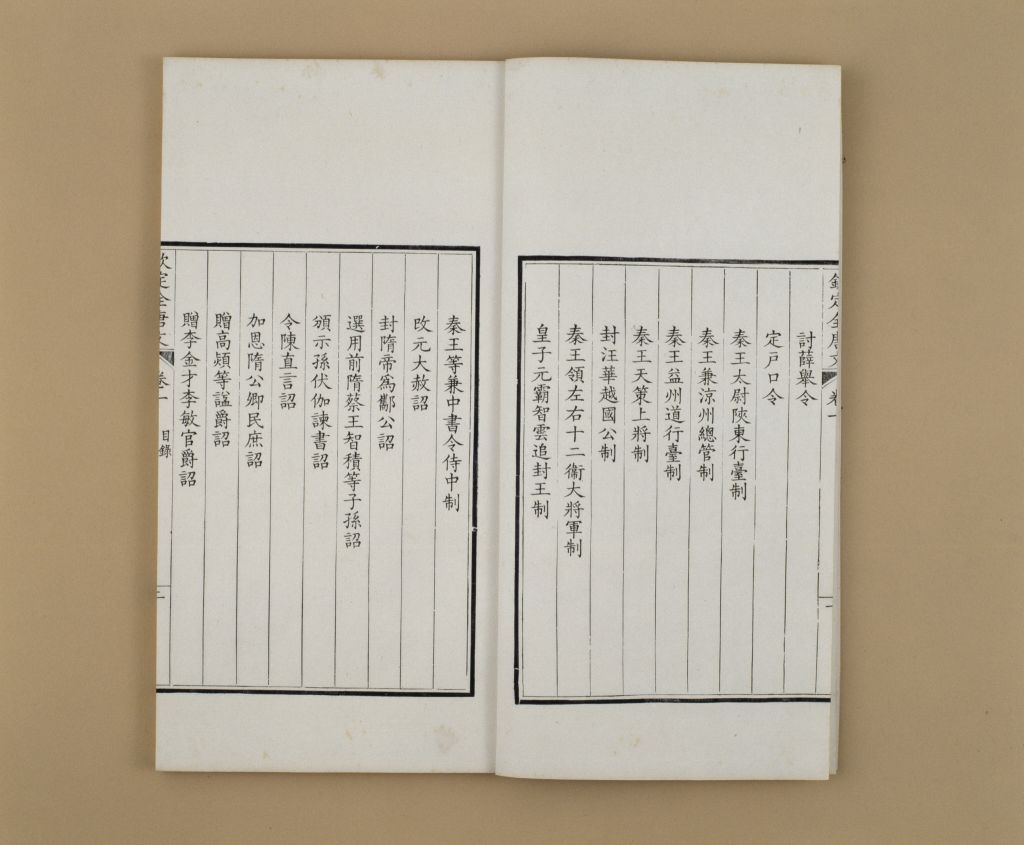 欽定全唐文 卷一 一
討薛舉令
定戶口令
秦王太尉陝東行臺制
秦王兼涼州總管制
秦王益州道行臺制
秦王天策上將制
封汪華越國公制
秦王領左右十二衞大將軍制
皇子元霸智雲追封王制
秦王等兼中書令侍中制
改元大赦詔
封隋帝爲酅公詔
選用前隋蔡王智積等子孫詔
頒示孫伏伽諫書詔
令陳直言詔
加恩隋公卿民庶詔
贈高熲等諡爵詔
贈李金才李敏官爵詔
欽定全唐文 卷一 目錄